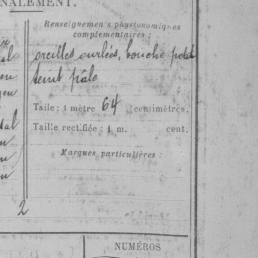 NALEMENT.
Renseignements physionomiques
complémentaires :
oreilles ourlées, bouche petite
teint pâle
Taille : 1 mètre 64 centimètres.
Taille rectifiée : 1 m. cent.
Marques particulières :
2
NUMÉROS